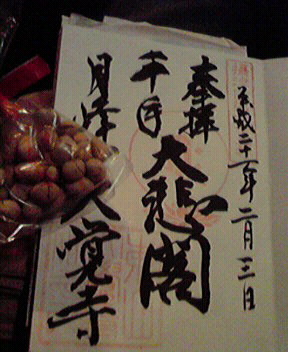 平成二十一年二月三日
奉拝
千手大悲閣
月峰
大覚寺